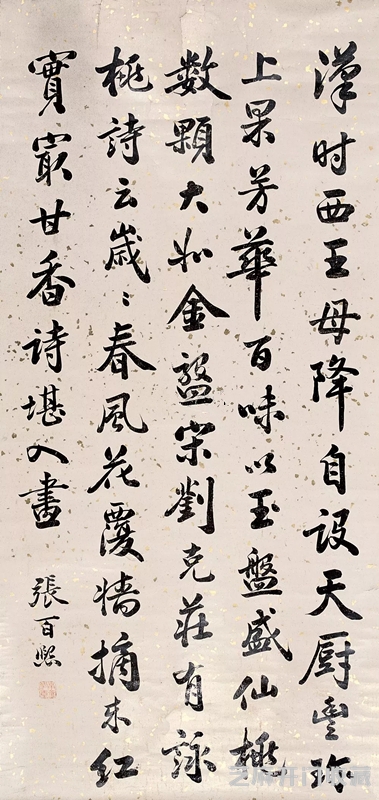 漢时西王母降自設天厨豐珎
上果芳華百味以玉盤盛仙桃
数顆大如金盌宋劉克莊有詠
桃詩云歲〻春風花覆墻摘來紅
實㝡甘香詩堪入畫
張百熙